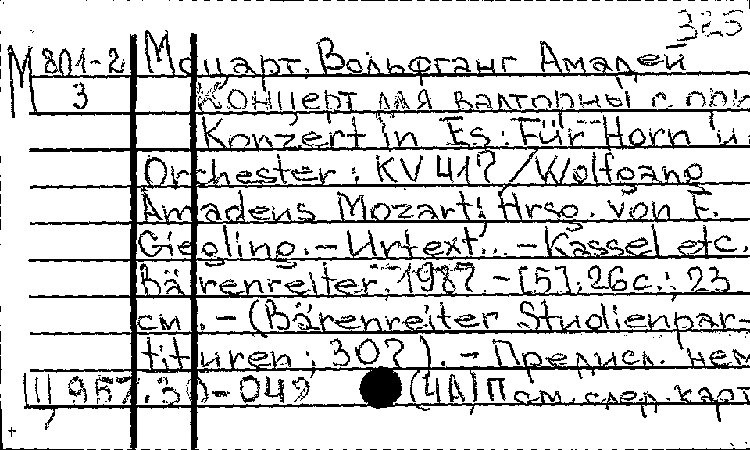 325
М 801-2 Моцарт, Вольфганг Амадей
3 Концерт для валторны с орк
Konzert in Es : Für Horn u.
Orchester : KV 417 / Wolfgang
Amadeus Mozart; Hrsg. von F.
Giegling. - Urtext... - Kassel etc.
Bärenreiter, 1987. - [5], 26 с.; 23
см. - (Bärenreiter Studienpar-
tituren ; 307). - Предисл. нем
957.30-049 (4А) Пом. след. карт